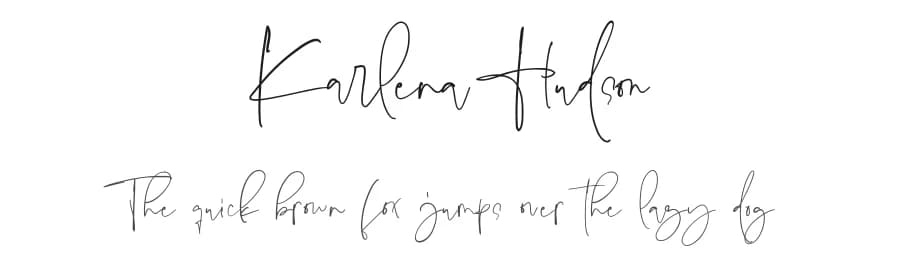 Karlena Hudson
The quick brown fox jumps over the lazy dog